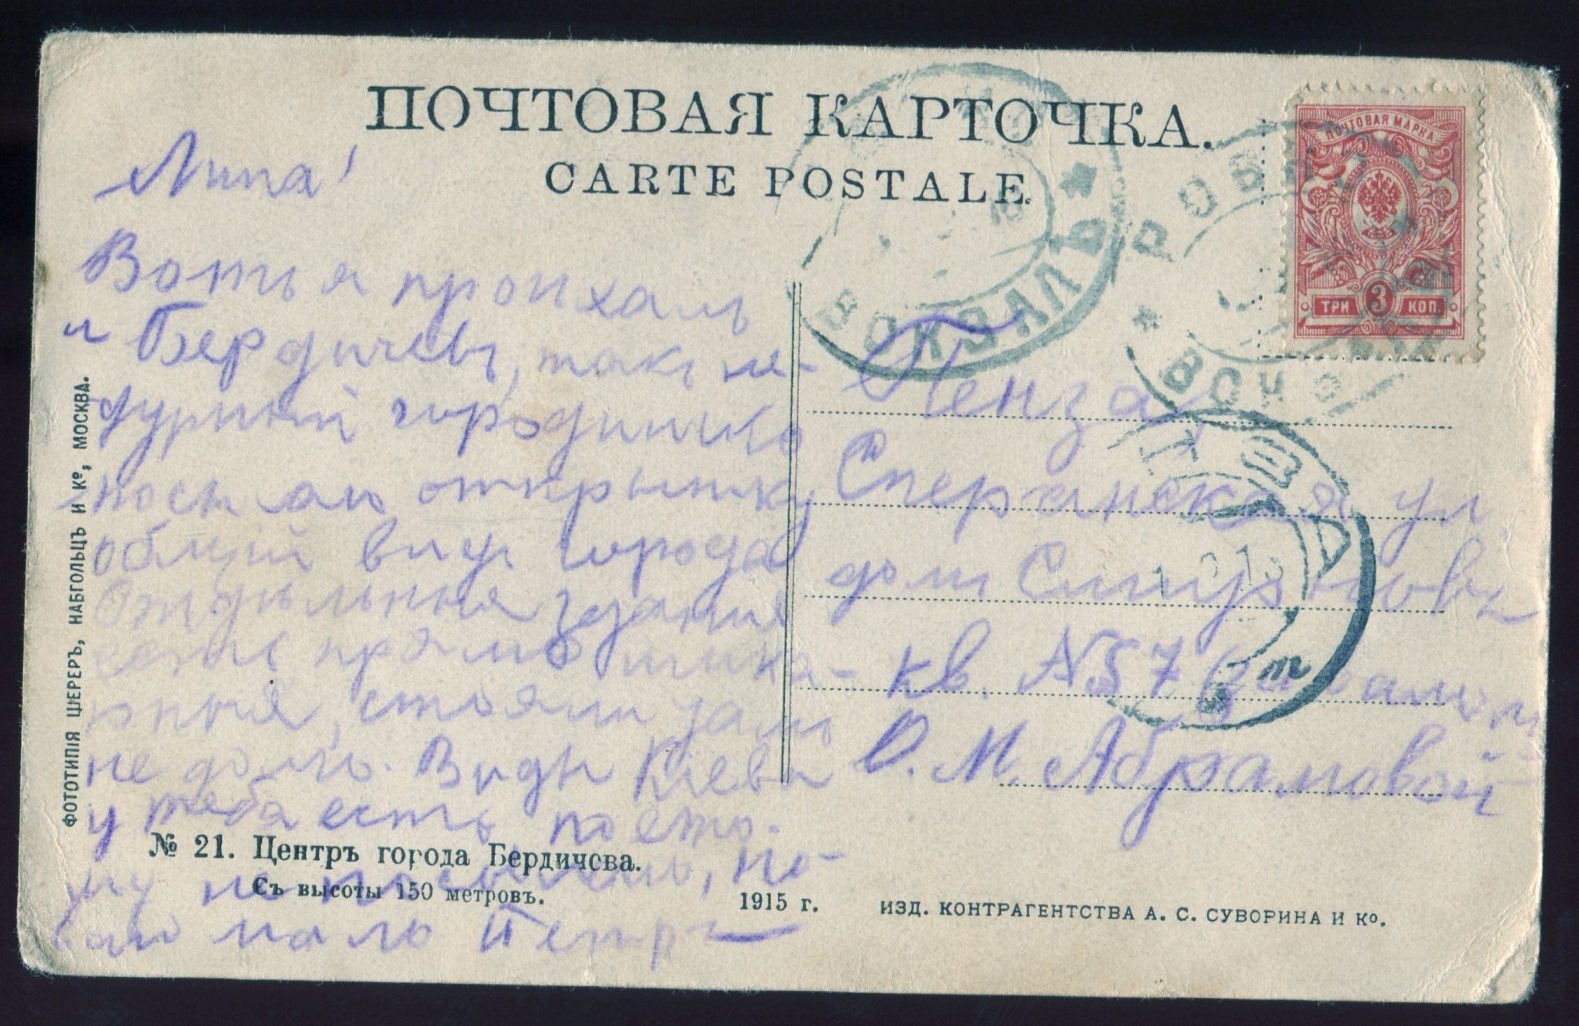 ПОЧТОВАЯ КАРТОЧКА.
CARTE POSTALE.
ПОЧТОВАЯ МАРКА
ТРИ 3 КОП.
ВОКЗАЛЪ
РОВНО
ПЕНЗА
Липа!
Вотъ я проихалъ
и Бердичевъ, такъ не-
дурный городишко
посылаю открытку
общий видъ города
Отдѣльныя здания
есть прямо шика-
рныя, стояли тамъ
не долго. Виды Киева
у тебя есть поэто-
му не посылаю, по-
Пенза,
Сперанская ул
домъ
кв. №57
О. М. Абрамовой
ФОТОТИПІЯ ШЕРЕРЪ, НАБГОЛЬЦЪ И Ко, МОСКВА.
№ 21. Центръ города Бердичева.
Съ высоты 150 метровъ.
1915 г.
ИЗД. КОНТРАГЕНТСТВА А. С. СУВОРИНА И Ко.